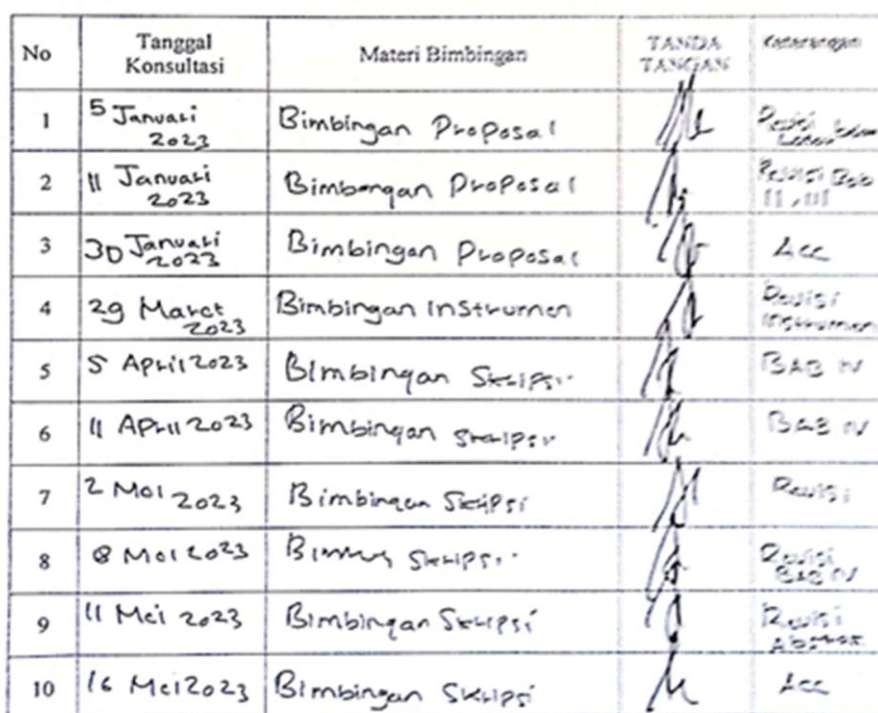 No Tanggal Konsultasi Materi Bimbingan TANDA TANGAN Keterangan
1 5 Januari 2023 Bimbingan Proposal Revisi
2 11 Januari 2023 Bimbangan Proposal Revisi Bab II, III
3 30 Januari 2023 Bimbingan Proposal Acc
4 29 Maret 2023 Bimbingan Instrumen Revisi Instrumen
5 5 April 2023 Bimbingan Skripsi BAB IV
6 11 April 2023 Bimbingan Skripsi BAB IV
7 2 Mei 2023 Bimbingan Skripsi Revisi
8 8 Mei 2023 Skripsi Revisi BAB IV
9 11 Mei 2023 Bimbingan Skripsi Revisi Abstrak
10 16 Mei 2023 Bimbingan Skripsi Acc